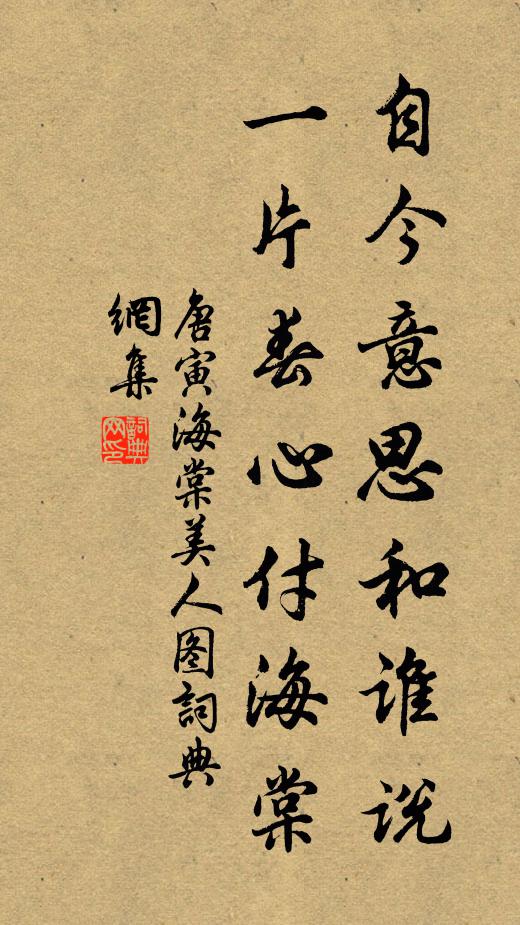 自今意思和谁说
一片春心付海棠
唐寅海棠美人图詞典
網集
詞典
网印